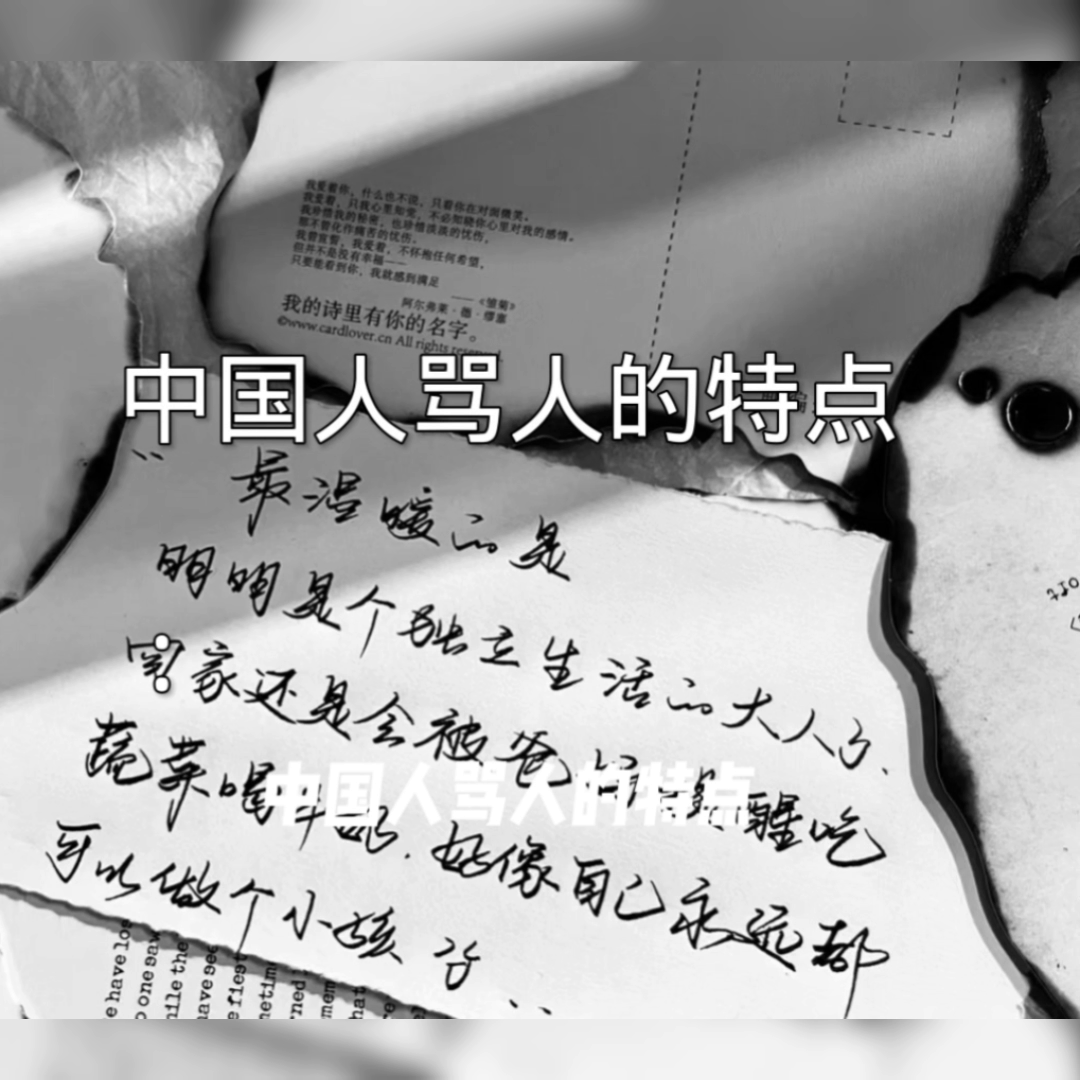 我爱着你，什么也不说，只看你在对面微笑。
我爱着，只我心里知觉，不必知晓你心里对我的感情。
我珍惜我的秘密，也珍惜淡淡的忧伤，
那不曾化作痛苦的忧伤。
我曾宣誓，我爱着，不怀抱任何希望，
但并不是没有幸福——
只要能看到你，我就感到满足
——《雏菊》
阿尔弗莱·德·缪塞
我的诗里有你的名字。
©www.cardlover.cn All rights reserved
中国人骂人的特点
“最温暖的是
明明是个独立生活的大人了.
回家还是会被爸妈提醒吃
中国人骂人的特点
蔬菜喝牛奶.好像自己永远都
可以做个小孩子”
e have los
o one saw
hile the
have see
e fiest
metim
rned
mem
hat